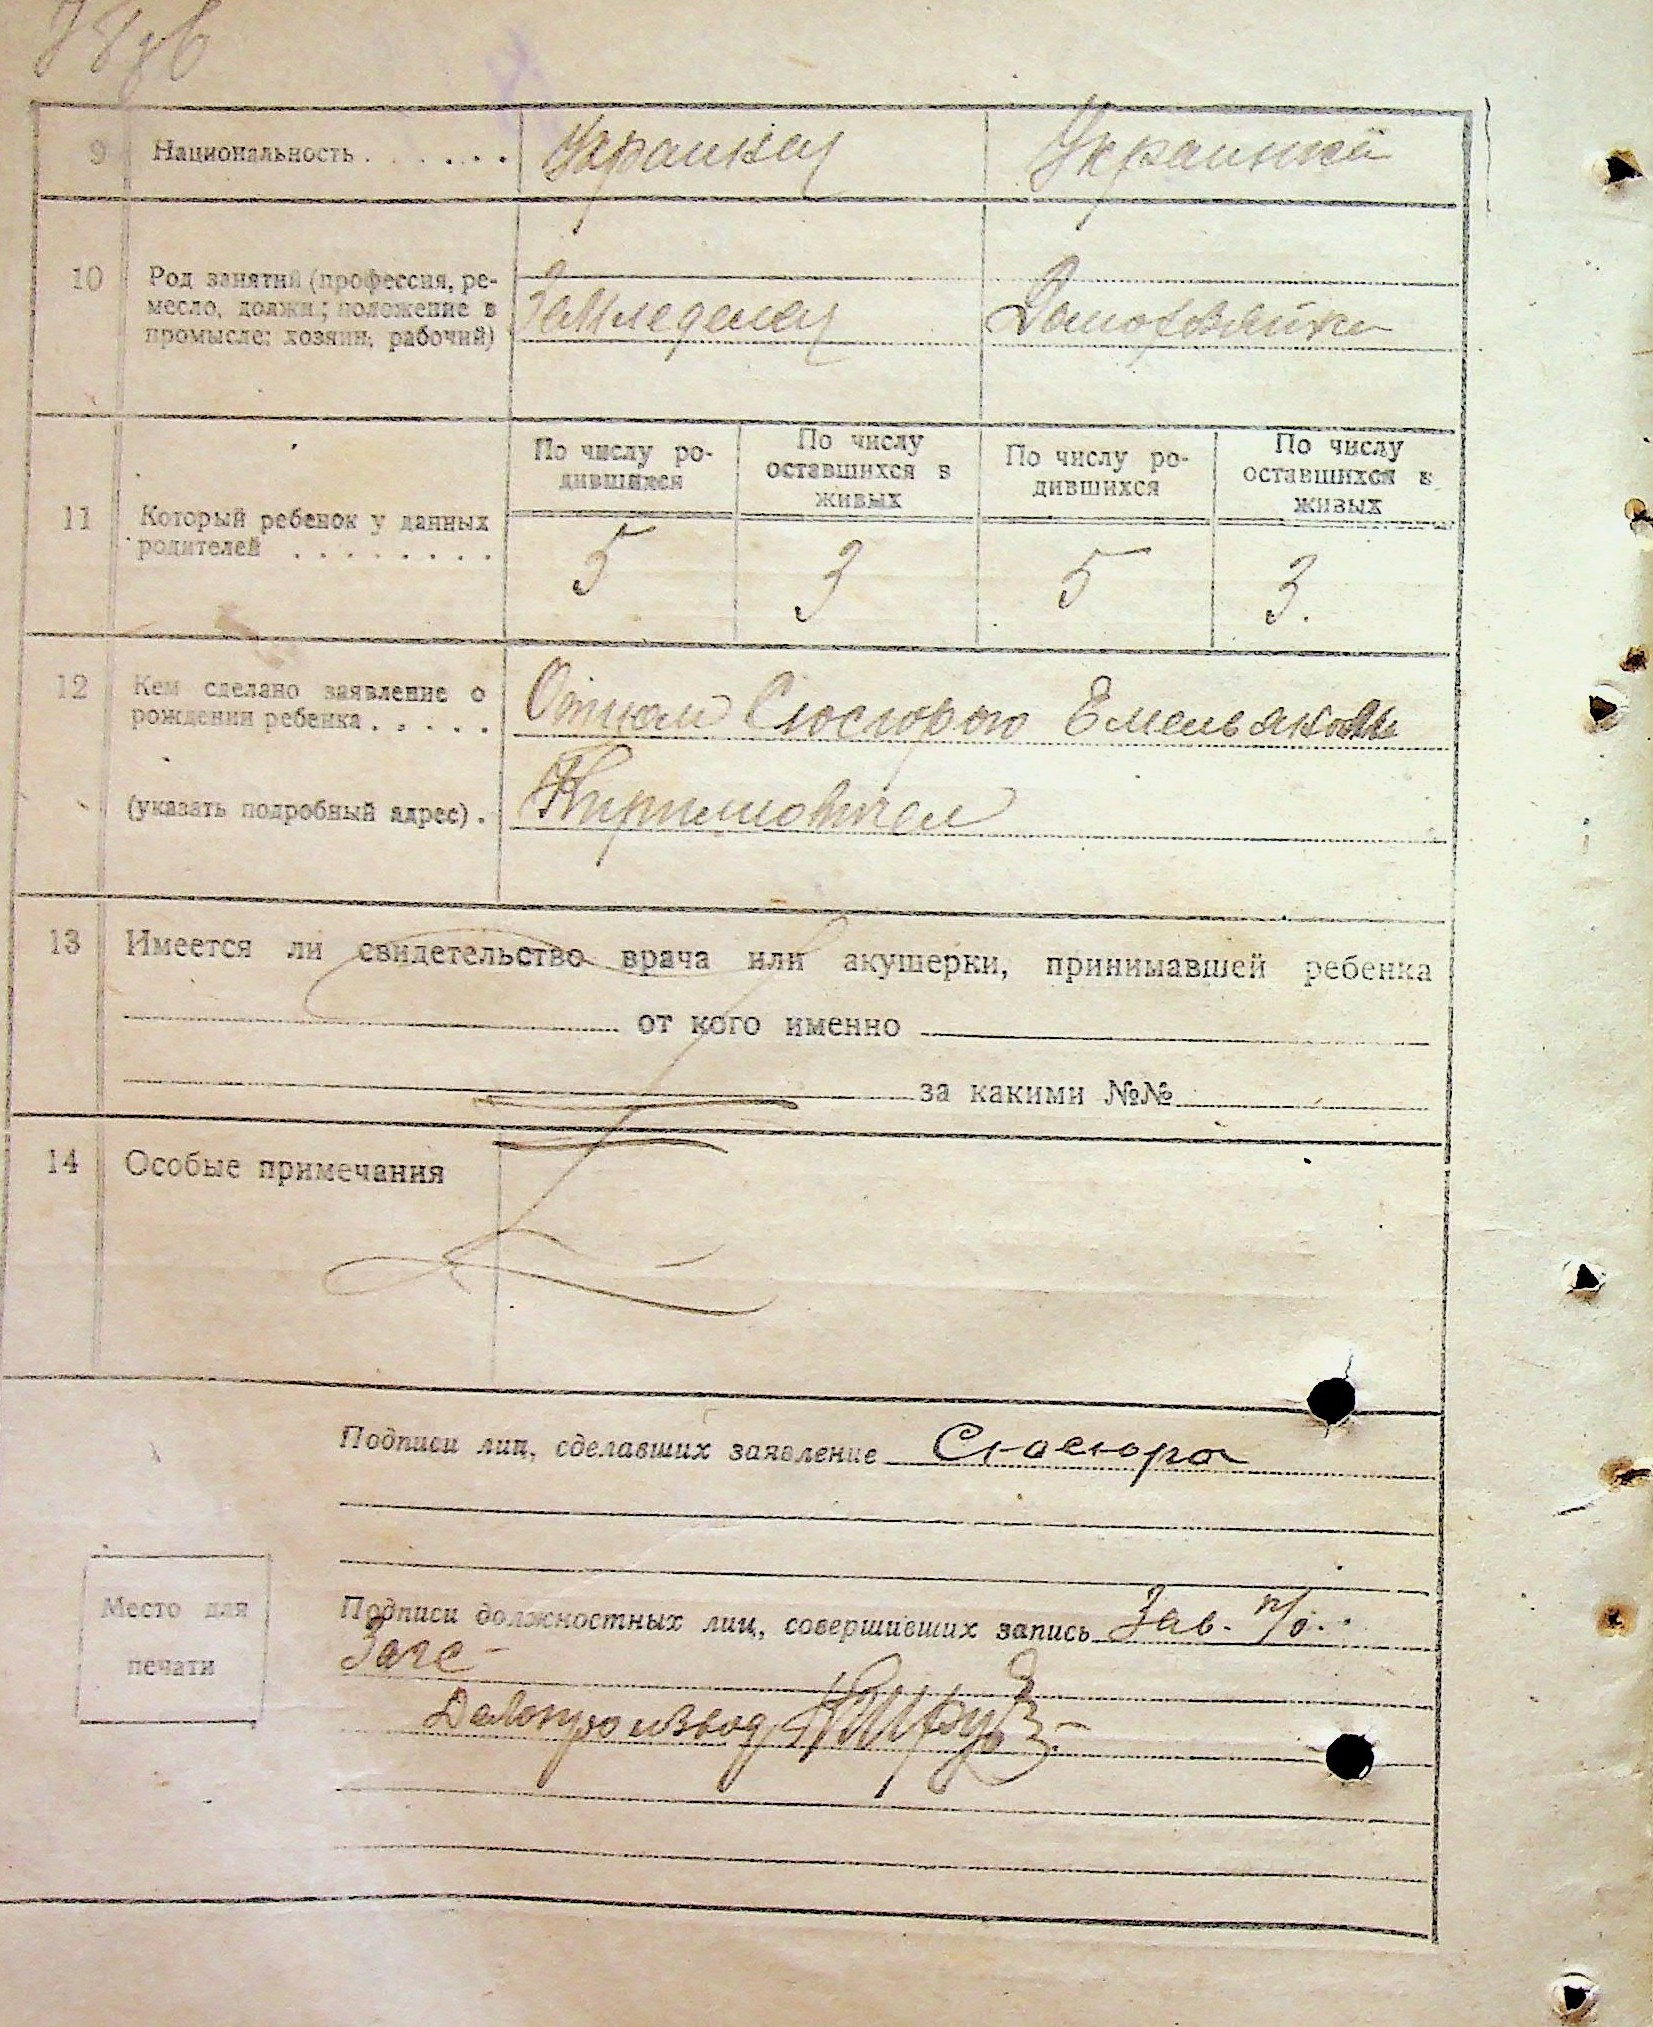 9 Национальность . . . . . . . Украинец Украинка
10 Род занятий (профессия, ре-
месло, должн.; положение в
промысле: хозяин, рабочий)
Земледелец Домохозяйка
11 Который ребенок у данных
родителей . . . . . . . .
По числу ро-
дившихся
По числу
оставшихся в
живых
По числу ро-
дившихся
По числу
оставшихся в
живых
5 3 5 3.
12 Кем сделано заявление о
рождении ребенка . . . . .
Отцом Сюсюрою Емельяном
(указать подробный адрес) .
Кирилловичем
13 Имеется ли свидетельство врача или акушерки, принимавшей ребенка
от кого именно
за какими №№
14 Особые примечания
Подписи лиц, сделавших заявление Сюсюра
Место для
печати
Подписи должностных лиц, совершивших запись Зав. п/о.
Загс
Делопроизвод.